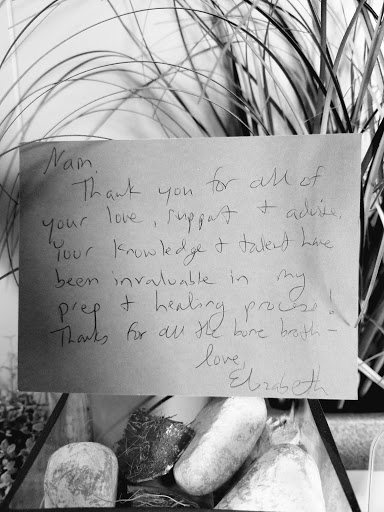 Nam,
Thank you for all of
your love, support + advice.
Your knowledge + talent have
been invaluable in my
prep + healing process!
Thanks for all the bone broth –
love,
Elizabeth